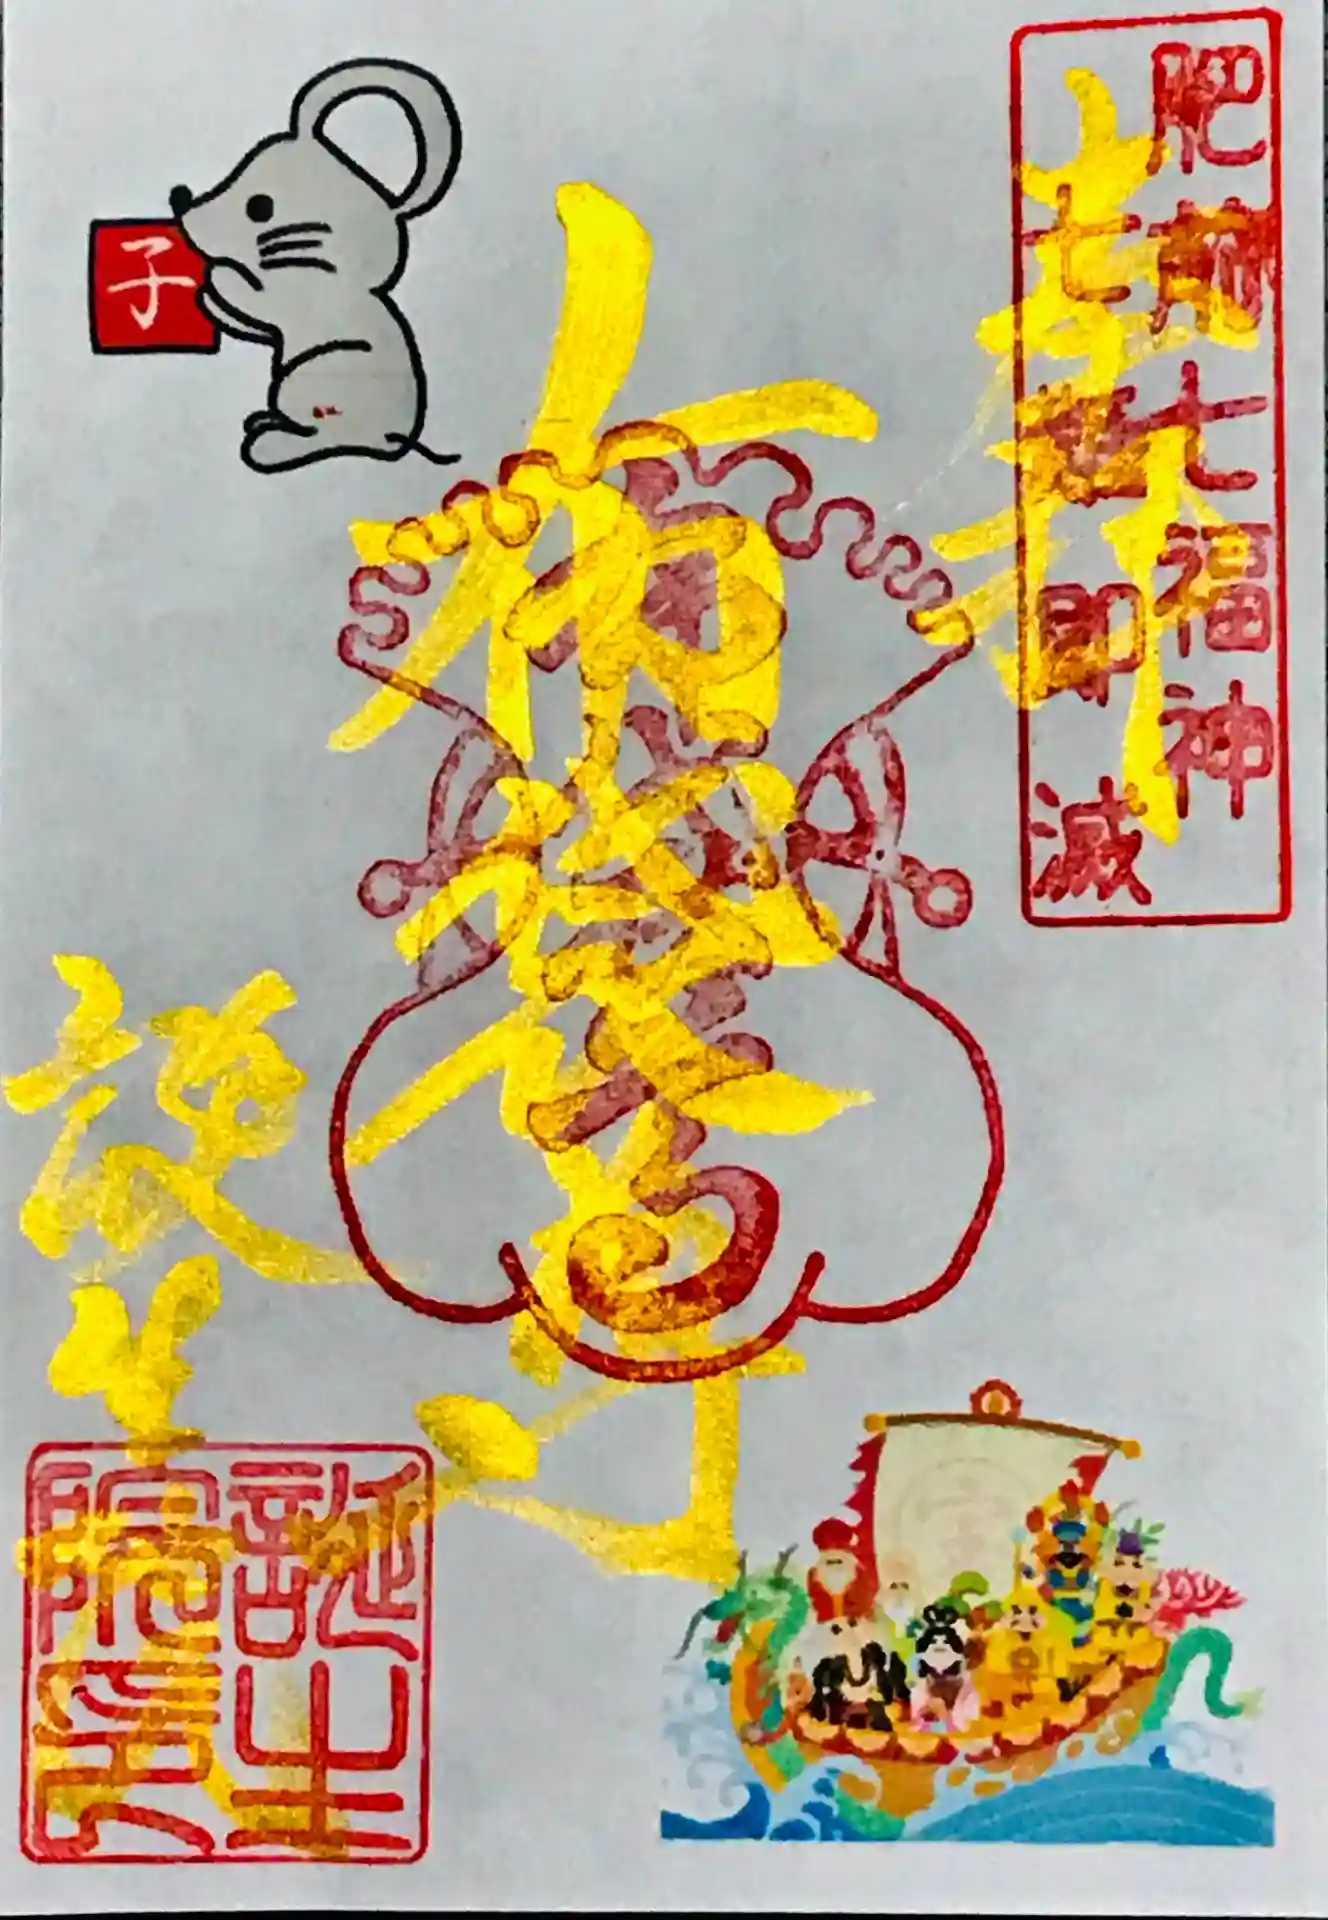 子
肥前七福神
七難即滅
奉拝
布袋尊
誕生院
誕生院印
宝